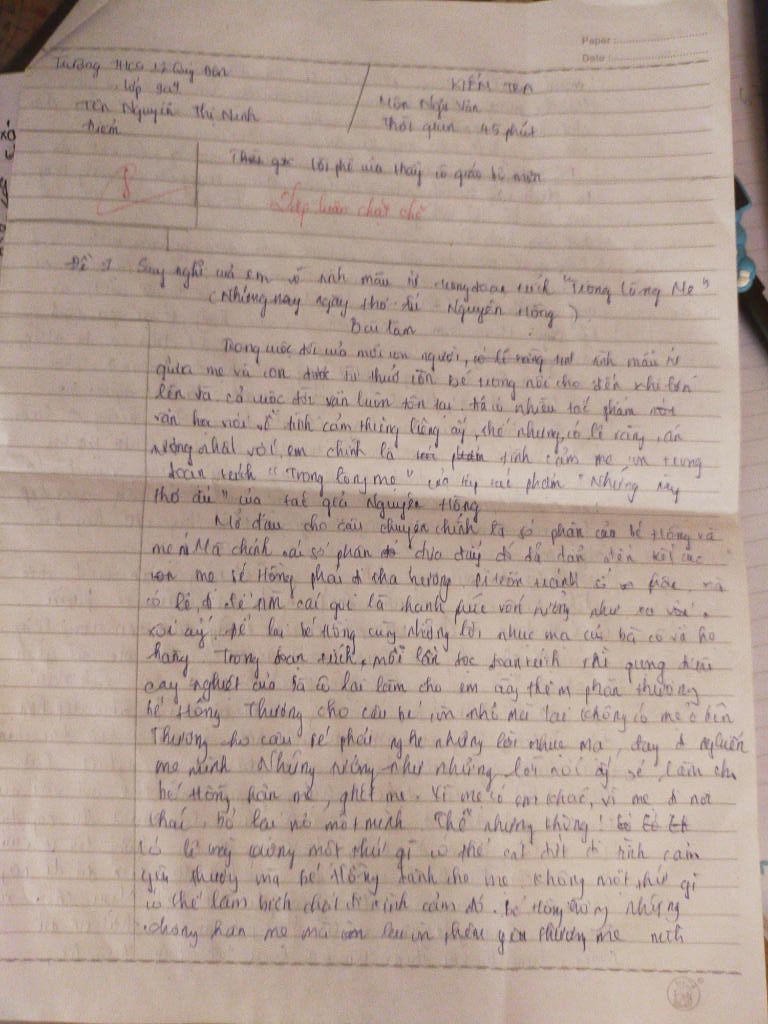 Paper :
Date :
Trường THCS Lê Quý Đôn
Lớp
Tên Nguyễn Thị Ninh
Điểm
KIỂM TRA
Môn Ngữ Văn
Thời gian 45 phút
8
lời phê của thầy cô giáo bộ môn
Lập luận chặt chẽ
Đề : Suy nghĩ của em về tình mẫu tử trong đoạn trích "Trong lòng Mẹ"
(Những ngày ngày thơ ấu Nguyên Hồng )
Bài làm
Trong cuộc đời của mỗi con người, tình mẫu tử
giữa mẹ và con từ thuở còn bé trong nôi cho đến khi lớn
lên và cả cuộc đời vẫn luôn tồn tại. Đã có nhiều tác phẩm
văn học về tình cảm thiêng liêng ấy, thế nhưng, có lẽ rằng, ấn
tượng nhất với em chính là tình cảm mẹ con trong
đoạn trích "Trong lòng mẹ" của tác phẩm "Những ngày
thơ ấu" của tác giả Nguyên Hồng
Mở đầu cho câu chuyện chính là số phận của bé Hồng và
mẹ. Mà chính cái số phận đưa đẩy đó đã dẫn đến kết cục
mẹ bé Hồng phải đi tha hương, đi trốn tránh
có lẽ đi để tìm cái gọi là hạnh phúc vốn tưởng như xa vời
xôi ấy, để lại bé Hồng cùng những lời nhục mạ của bà cô và họ
hàng. Trong đoạn trích, mỗi lần đọc đoạn trích thì giọng điệu
cay nghiệt của bà cô lại làm cho em thêm phần thương
bé Hồng. Thương cho cậu bé còn nhỏ mà lại không có mẹ ở bên
Thương cho cậu bé phải nghe những lời nhục mạ, đay nghiến
mẹ mình. Những tưởng như những lời nói ấy sẽ làm cho
bé Hồng hận mẹ, ghét mẹ. Vì mẹ có em khác, vì mẹ đi nơi
khác, bỏ lại nó một mình. Thế nhưng không!
Có lẽ rằng không một thứ gì có thể cắt đứt đi tình cảm
yêu thương mà bé Hồng dành cho mẹ. không một thứ gì
có thể làm đi tình cảm đó. bé Hồng không những
không hận mẹ mà còn thêm yêu thương mẹ